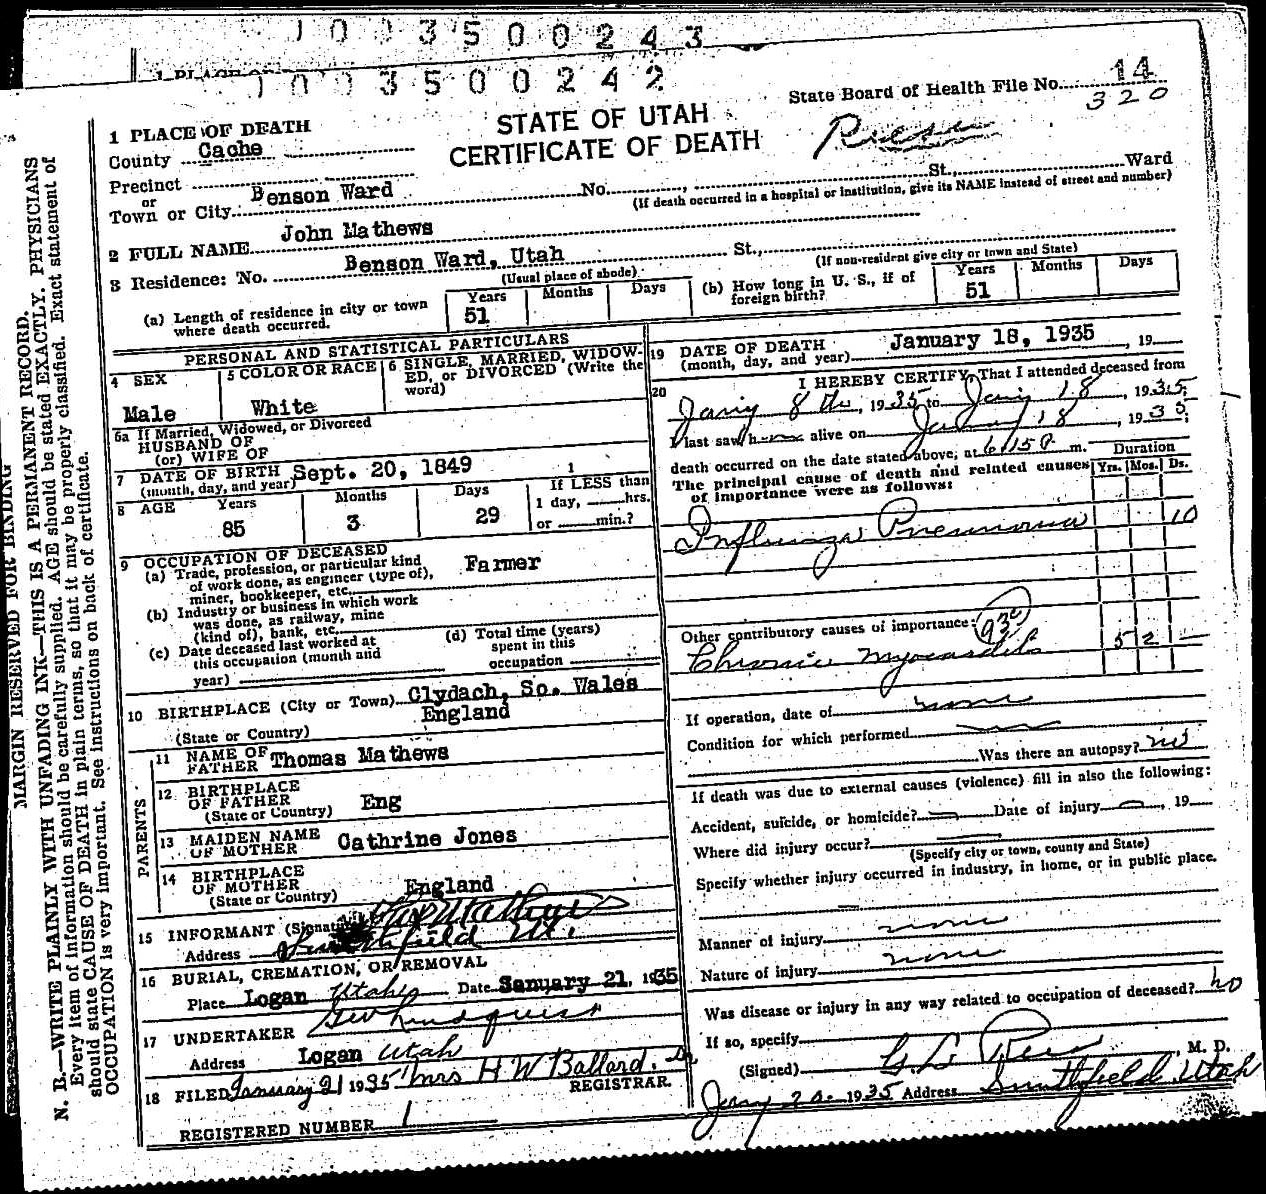 1003500243
1003500242
State Board of Health File No. 14
320
STATE OF UTAH
CERTIFICATE OF DEATH
1 PLACE OF DEATH
County Cache
Precinct
or
Town or City Benson Ward No. , St., Ward
(If death occurred in a hospital or institution, give its NAME instead of street and number)
2 FULL NAME John Mathews
3 Residence: No. Benson Ward, Utah St.,
(Usual place of abode) (If non-resident give city or town and State)
(a) Length of residence in city or town where death occurred. Years 51 Months Days
(b) How long in U. S., if of foreign birth? Years 51 Months Days
PERSONAL AND STATISTICAL PARTICULARS
4 SEX Male
5 COLOR OR RACE White
6 SINGLE, MARRIED, WIDOW-
ED, or DIVORCED (Write the
word)
6a If Married, Widowed, or Divorced
HUSBAND OF
(or) WIFE OF
7 DATE OF BIRTH Sept. 20, 1849
(month, day, and year)
8 AGE Years 85 Months 3 Days 29
If LESS than
1 day, hrs.
or min.?
9 OCCUPATION OF DECEASED
(a) Trade, profession, or particular kind
of work done, as engineer (type of),
miner, bookkeeper, etc. Farmer
(b) Industry or business in which work
was done, as railway, mine
(kind of), bank, etc.
(c) Date deceased last worked at
this occupation (month and
year)
(d) Total time (years)
spent in this
occupation
10 BIRTHPLACE (City or Town) Clydach, So. Wales
(State or Country) England
PARENTS
11 NAME OF
FATHER Thomas Mathews
12 BIRTHPLACE
OF FATHER Eng
(State or Country)
13 MAIDEN NAME
OF MOTHER Cathrine Jones
14 BIRTHPLACE
OF MOTHER England
(State or Country)
15 INFORMANT (Signature) Mathews
Address Smithfield Ut.
16 BURIAL, CREMATION, OR REMOVAL
Place Logan Utah Date January 21, 1935
17 UNDERTAKER Lindquist
Address Logan Utah
18 FILED January 21 1935 Mrs H W Ballard. Dr
REGISTRAR.
REGISTERED NUMBER 1
19 DATE OF DEATH January 18, 1935, 19
(month, day, and year)
20 I HEREBY CERTIFY, That I attended deceased from
Jany 8th, 1935 to Jany 18, 1935
I last saw h alive on January 18, 1935
death occurred on the date stated above, at 6:15 P m.
The principal cause of death and related causes
of importance were as follows:
Duration
Yrs. Mos. Ds.
Influenza Pneumonia 10
Other contributory causes of importance:
Chronic Myocarditis 5 2
If operation, date of none
Condition for which performed
Was there an autopsy? no
If death was due to external causes (violence) fill in also the following:
Accident, suicide, or homicide? Date of injury , 19
Where did injury occur?
(Specify city or town, county and State)
Specify whether injury occurred in industry, in home, or in public place.
Manner of injury none
Nature of injury none
Was disease or injury in any way related to occupation of deceased? no
If so, specify
(Signed) , M. D.
Jany 20 1935 Address Smithfield, Utah
MARGIN RESERVED FOR BINDING
N. B.—WRITE PLAINLY WITH UNFADING INK—THIS IS A PERMANENT RECORD.
Every item of information should be carefully supplied. AGE should be stated EXACTLY. PHYSICIANS
should state CAUSE OF DEATH in plain terms, so that it may be properly classified. Exact statement of
OCCUPATION is very important. See instructions on back of certificate.